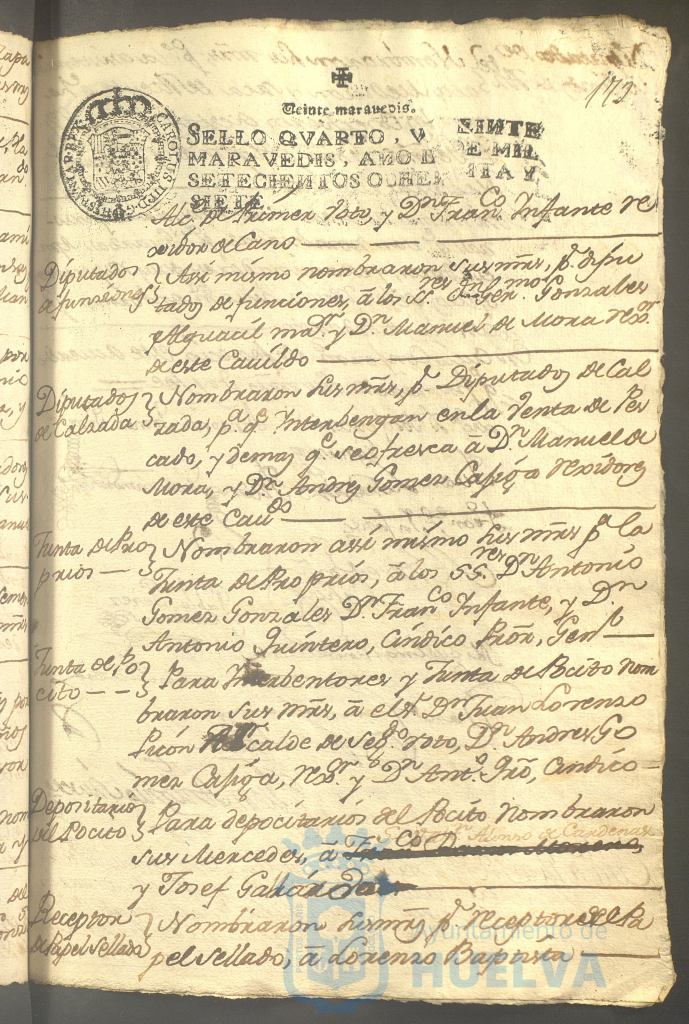 173
Veinte maravedis.
SELLO QVARTO, VEINTE
MARAVEDIS, AÑO DE MIL
SETECIENTOS OCHENTA Y
SIETE.
CAROLUS III D.G. HISPANIAR. REX
Alc. de Primer Voto, y Dn. Franco. Infante Re
xidor de Cano
Diputados de funciones
Assi mismo nombraron sus mrs, pr. dipu
tados de funciones, â los ss.res Gonzales
Alguacil mor. y Dn. Manuel de Mora Rexor.
de este Cavildo
Diputados de Calzada
Nombraron sus mrs, pr. Diputados de Cal
zada, pa. qe. Ynterbengan en la Venta de Pes
cado, y demas qe. se ofresca â Dn. Manuel de
Mora, y Dn. Andres Gomez Rexidores
de este Cavdo.
Junta de Pro
prios
Nombraron assi mismo sus mrs pa. la
Junta de Proprios, â los SS.res Dn. Antonio
Gomez Gonzales Dn. Franco. Infante, y Dn.
Antonio Quintero, Cindico Pror. Genl.
Junta de Po
cito
Para Ynterbentores y Junta de Pocito nom
braron sus mrs, â el sr. Dn. Juan Lorenzo
Picón Alcalde de segdo. voto, Dn. Andres Go
mez Rexor. y Dn. Anto. Qro, Cindico
Depositario
del Pocito
Para depocitarios del Pocito Nombraron
Alonso de Cardenas
sus Mercedes, â Franco. Moreno,
y Josef Galván
Receptor
de Papel sellado
Nombraron sus mrs pr. receptor del Pa
pel sellado, â Lorenzo Baptista
Ayuntamiento de
HUELVA